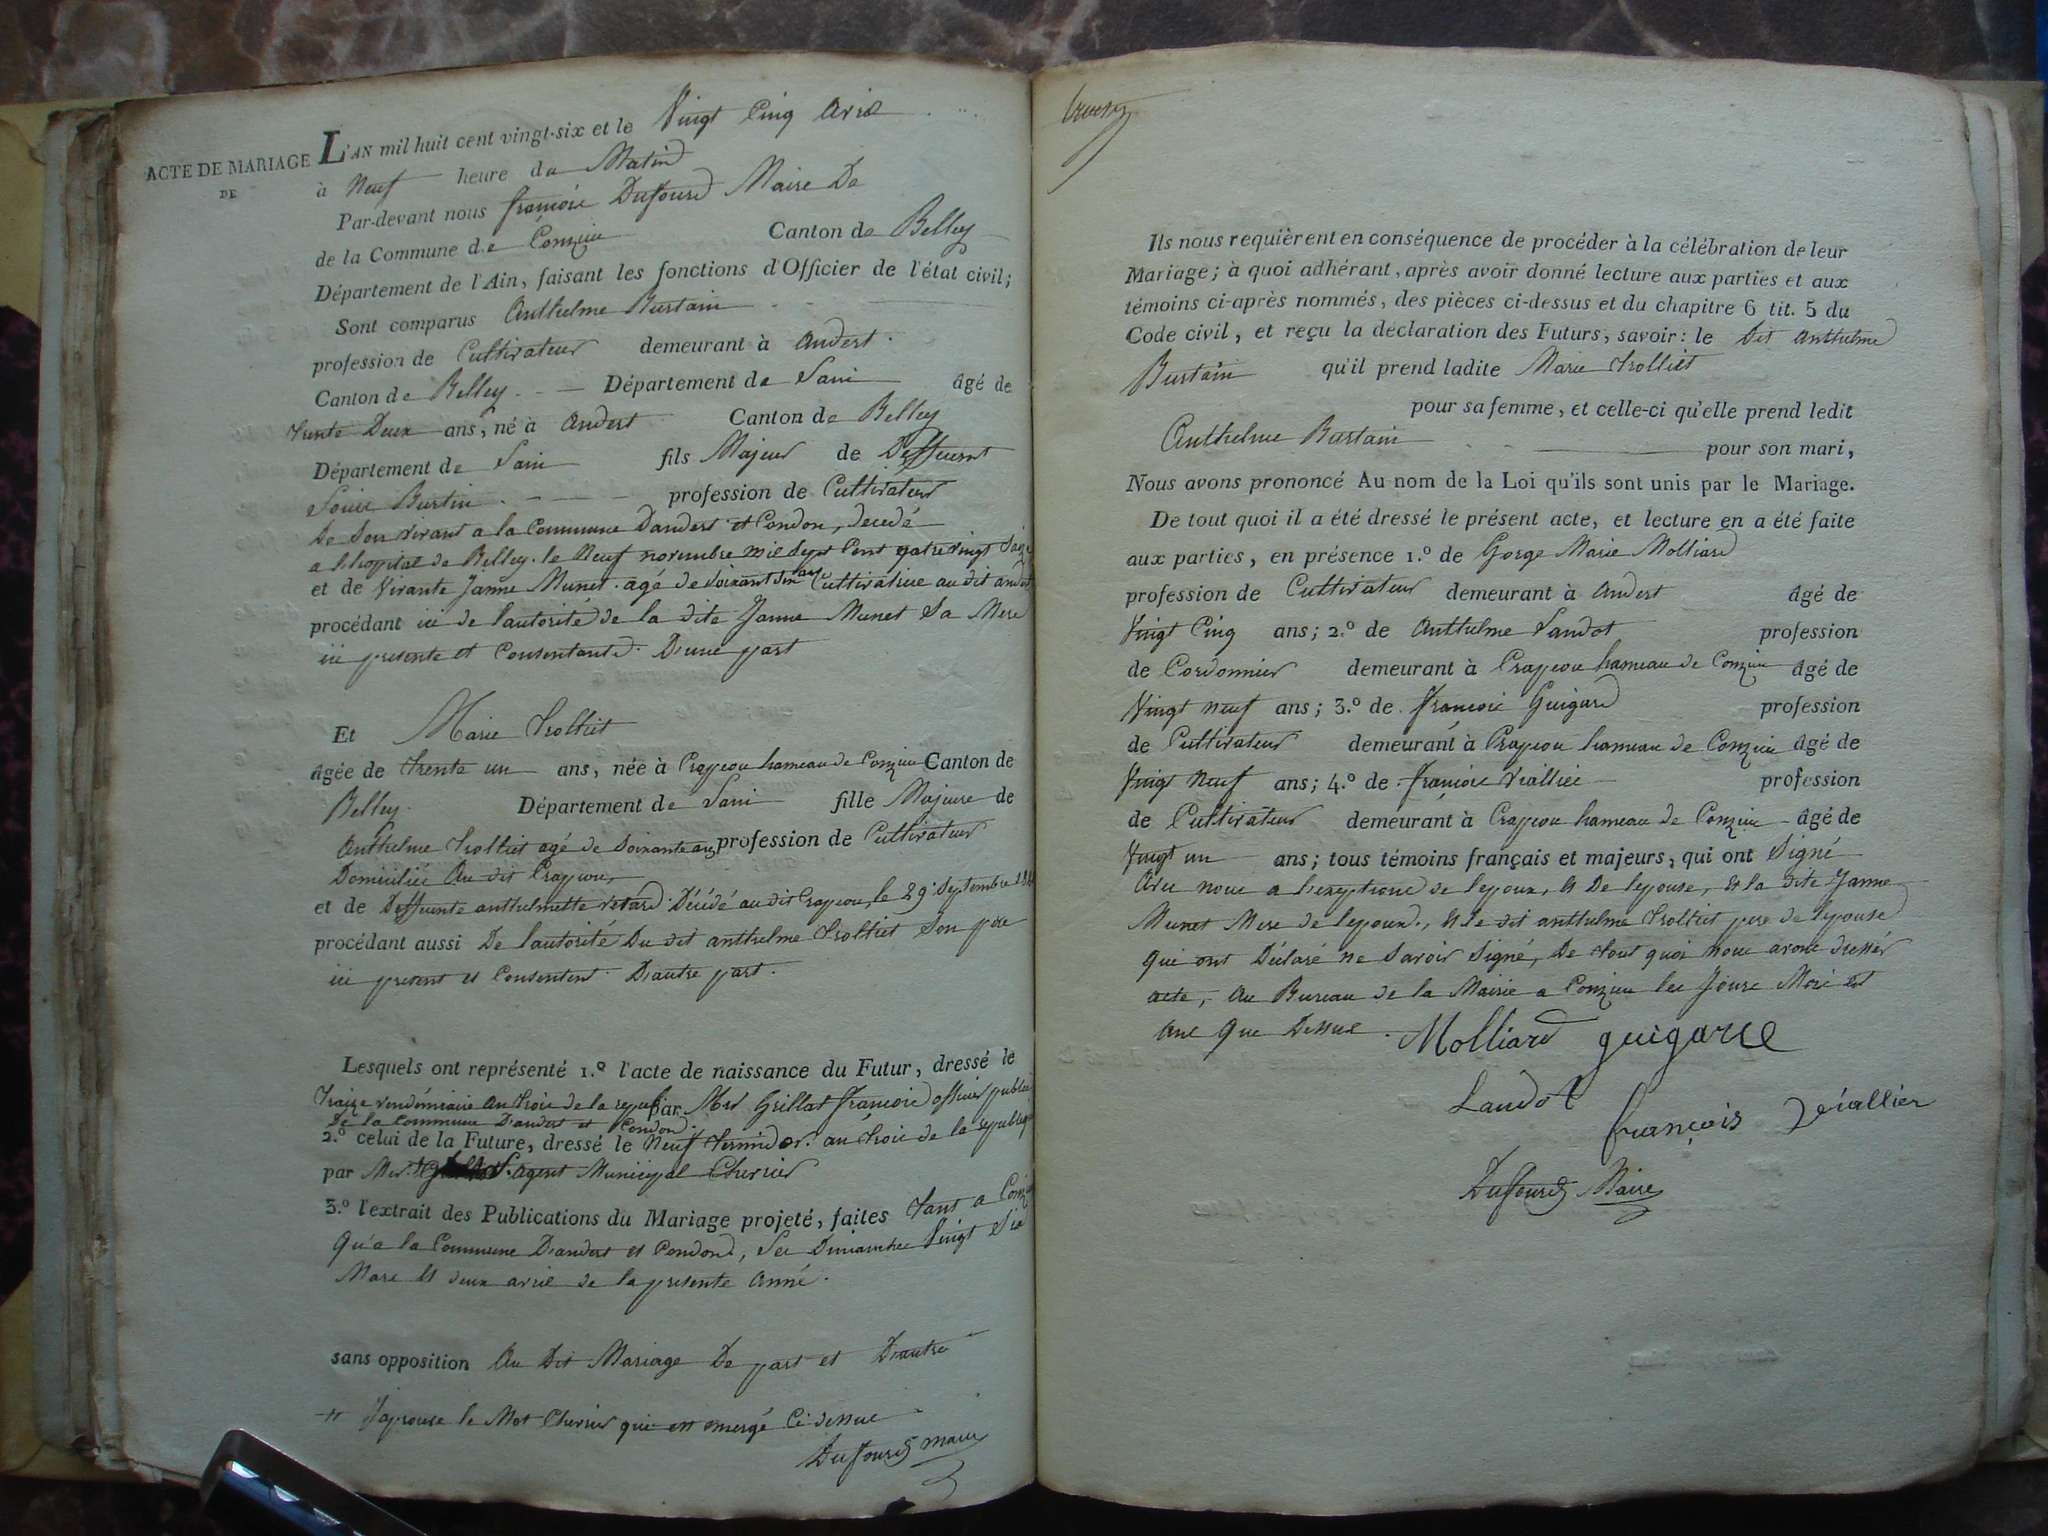 ACTE DE MARIAGE
DE
L'AN mil huit cent vingt-six et le Vingt Cinq Avril
à Neuf heure du Matin
Par-devant nous françois Dufourd Maire De
de la Commune de Conzieu Canton de Belley
Département de l'Ain, faisant les fonctions d'Officier de l'état civil;
Sont comparus Anthelme Burtain
profession de Cultivateur demeurant à Andert
Canton de Belley Département de Lain âgé de
trente Deux ans, né à Andert Canton de Belley
Département de Lain fils Majeur de Deffeunt
Louis Burtin profession de Cultivateur
De Son vivant a la Commune Dandert et Condon, decedé
a lhopital de Belley le Neuf novembre mil Sept Cent quatrevingt Saize
et de Vivante Janne Munet agé de Soixant ans Cultivatrice au dit andert
procédant ici de lautorité de la dite Janne Munet Sa Mere
ici presente et Consentante D'une part
Et Marie trolliet
âgée de trente un ans, née à Crapeou hameau de Conzieu Canton de
Belley Département de Lain fille Majeure de
Anthelme trolliet agé de Soixante ans profession de Cultivateur
Domicilié Au dit Crapeou
et de Deffeunte anthelmette Décédé au dit Crapeou le 29 Septembre
procédant aussi De lautorité Du dit anthelme trolliet Son père
ici present et Consentent D'autre part.
Lesquels ont représenté 1.º l'acte de naissance du Futur, dressé le
traize vendémiaire an trois de la repub par Mer Grillat françois officier public
De la Commune Dandert et Condon
2.º celui de la Future, dressé le Neuf termidor an trois de la republiq
par Mer agent Municipal Chervier
3.º l'extrait des Publications du Mariage projeté, faites tant a Conzieu
Qu'a la Commune D'andert et Condon, les Dimanches Vingt Six
Mars et deux avril de la presente Anné.
sans opposition Au Dit Mariage De part et D'autre
Japrouve le Mot Chervier qui est Ci dessus
Dufourd maire
Ils nous requièrent en conséquence de procéder à la célébration de leur
Mariage; à quoi adhérant, après avoir donné lecture aux parties et aux
témoins ci-après nommés, des pièces ci-dessus et du chapitre 6 tit. 5 du
Code civil, et reçu la déclaration des Futurs, savoir: le Dit Anthelme
Burtain qu'il prend ladite Marie trolliet
pour sa femme, et celle-ci qu'elle prend ledit
Anthelme Burtain pour son mari,
Nous avons prononcé Au nom de la Loi qu'ils sont unis par le Mariage.
De tout quoi il a été dressé le présent acte, et lecture en a été faite
aux parties, en présence 1.º de Gorge Marie Molliard
profession de Cultivateur demeurant à Andert âgé de
Vingt Cinq ans; 2.º de Anthelme Landot profession
de Cordonnier demeurant à Crapeou hameau de Conzieu âgé de
Vingt neuf ans; 3.º de françois Guigard profession
de Cultivateur demeurant à Crapeou hameau de Conzieu âgé de
Vingt Neuf ans; 4.º de françois Viallier profession
de Cultivateur demeurant à Crapeou hameau de Conzieu âgé de
Vingt un ans; tous témoins français et majeurs, qui ont Signé
Avec nous a l'exeptiond de lepoux, et De lepouse, et la dite Janne
Munet Mere de lepoux, et le dit anthelme trolliet pere de lepouse
Qui ont Déclaré ne Savoir Signé, De tout quoi nous avons dressér
acte, Au Bureau de la Mairie a Conzieu les Jours Mois et
ans Que Dessus. Molliard guigard
Landot
françois vialliier
Dufourd Maire